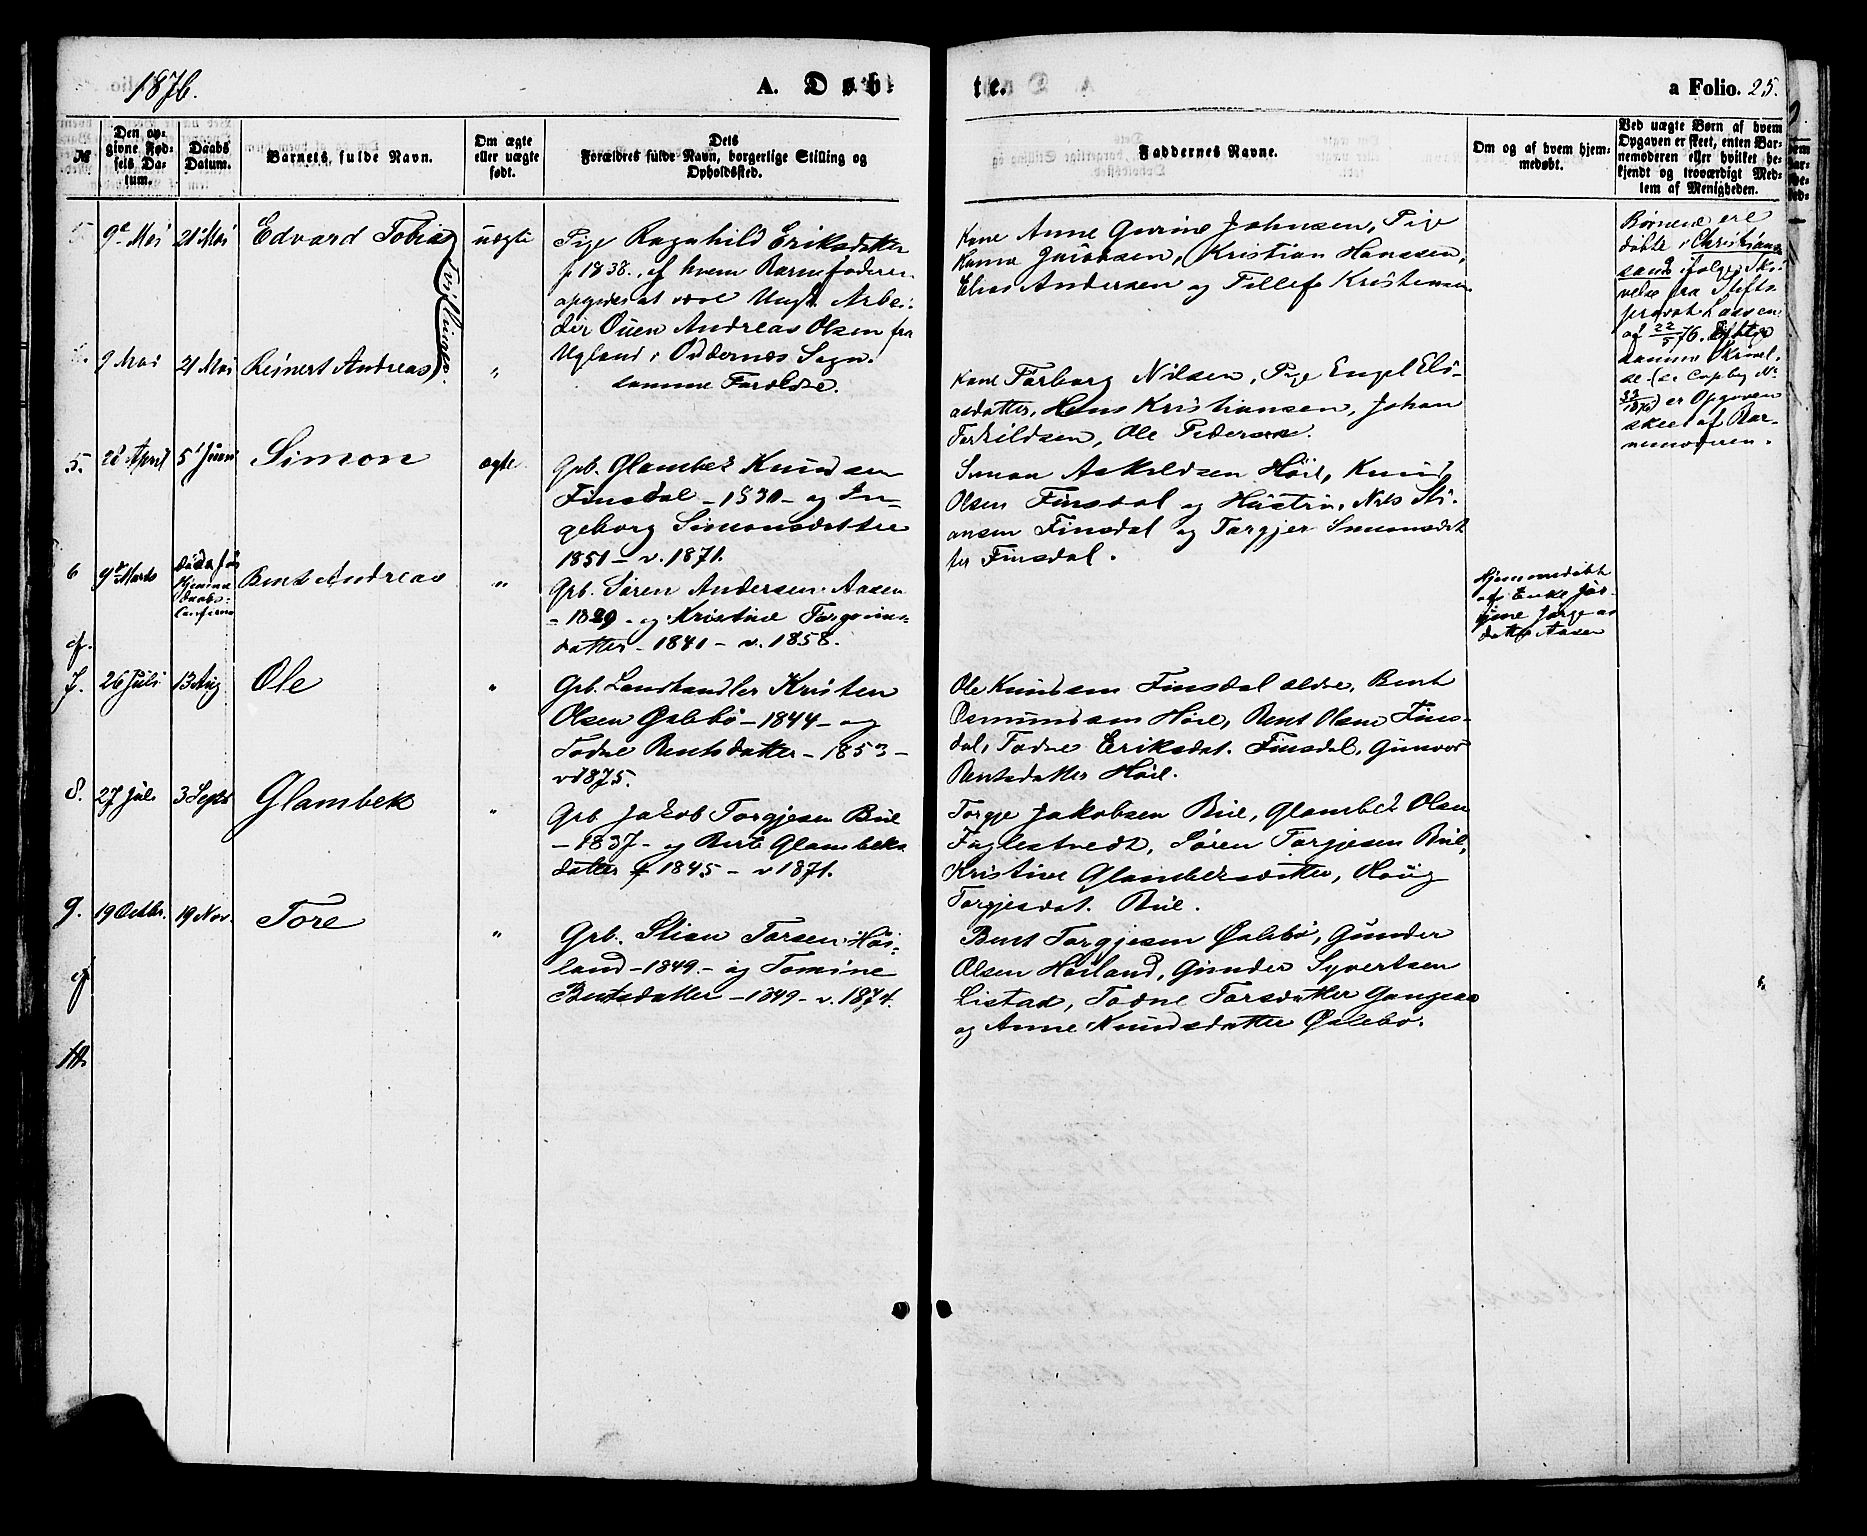 1876.
A. Døb-
te.
a Folio. 25.
№
Den op-
givne Fød-
sels Da-
tum.
Daabs
Datum.
Barnets, fulde Navn.
Om ægte
eller uægte
født.
Dets
Forældres fulde Navn, borgerlige Stilling og
Opholdssted.
Faddernes Navne.
Om og af hvem hjem-
medøbt.
Ved uægte Børn af hvem
Opgaven er skeet, enten Bar-
nemoderen eller hvilket be-
kjendt og troværdigt Med-
lem af Menigheden.
9de Mai 21 Mai Edvard Tobias uægte
Tvillinger.
Pige Ragnhild Eriksdatter
f 1838, af hvem Barnefaderen
opgives at være Ungk. Arbei-
der Ouen Andreas Olsen fra
Ugland i Oddernes Sogn.
Kone Anne Gurine Johnsen, Pige
Jacobsen, Kristian Hanssen,
Elias Andersen og Tellef Kristensen
Børnene ere
døbte i Christian-
sand ifølge Skri-
velse fra Stifts-
provst Lassen
af 22/5 76. Ifølge
samme Skrivel-
se (se Copibog No
33/1876) er Opgaven
skeet af Bar-
nemoderen.
9 Mai 21 Mai Reinert Andreas "
samme Forældre.
Kone Torborg Nilsen, Pige Engel Eli-
asdatter, Hans Kristiansen, Johan
Terkildsen, Ole Pedersen.
5. 28 April 5 Juni Simon ægte
Grb. Glambek Knudsen
Finsdal - 1830 - og In-
geborg Simonsdatter
1851 - v. 1871.
Simon Askildsen Höie, Knud
Olsen Finsdal og Hustru, Nils Sti-
ansen Finsdal og Torgjer Simonsdat
ter Finsdal.
6 9de Marts
døde før
Hjemme
daabs-
Bent Andreas "
Grb. Sören Andersen Aasen
- 1829 - og Kristine Torgrims-
datter - 1841 - v. 1858.
Hjemmedøbt
af Enke Jör-
gine Jørgens
datter Aasen
7. 26 Juli 13 Aug Ole "
Grb. Landhandler Kristen
Olsen Øslebö - 1844 - og
Todne Bentsdatter - 1853 -
v 1875.
Ole Knudsen Finsdal ældre, Bent
Osmundsen Höie, Bent Olsen Fins-
dal, Todne Eriksdat. Finsdal, Gunvor
Bentsdatter Höie.
8. 27 Juli 3 Septr Glambek "
Grb Jakob Torgjesen Bue
- 1837 - og Berte Glambeks
datter f 1845 - v 1871.
Torgje Jakobsen Bue, Glambek Olsen
Fuglestvedt, Sören Torgjesen Bue,
Kristine Glambeksdatter,
Torgjesdat. Bue.
9. 19 Octbr. 19 Nov. Tore "
Grb. Stian Torsen Höi-
land - 1849. - og Tomine
Bentsdatter - 1849 - v. 1874.
Bent Torgjesen Øslebö, Gunder
Olsen Höiland, Gunder Syvertsen
Listad, Todne Torsdatter Gangsaas
og Anne Knudsdatter Øslebø.
10.